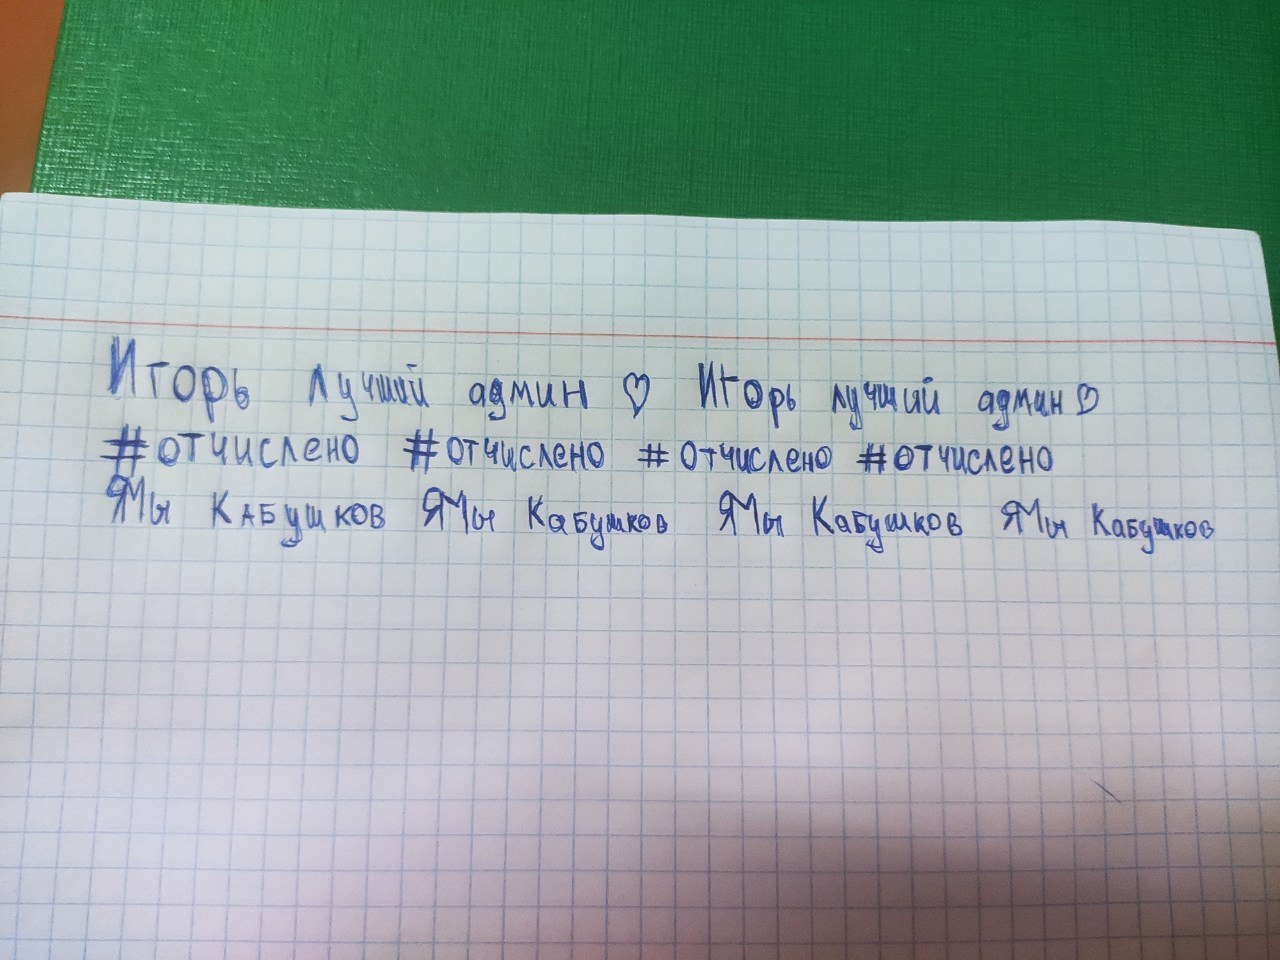 Игорь лучший админ ♡ Игорь лучший админ ♡
#отчислено #отчислено #отчислено #отчислено
ЯМы Кабушков ЯМы Кабушков ЯМы Кабушков ЯМы Кабушков